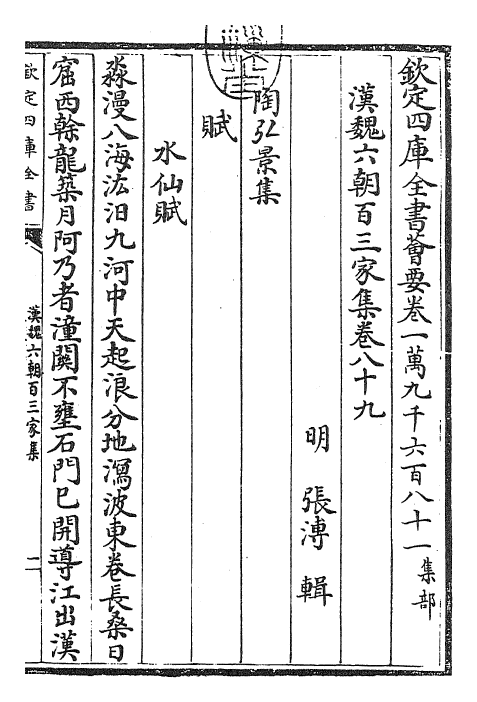 欽定四庫全書薈要卷一萬九千六百八十一集部
漢魏六朝百三家集卷八十九
明 張溥 輯
陶弘景集
賦
水仙賦
淼漫八海汯汨九河中天起浪分地瀉波東卷長桑日
窟西斡龍築月阿乃者潼關不壅石門已開導江出漢
欽定四庫全書
漢魏六朝百三家集